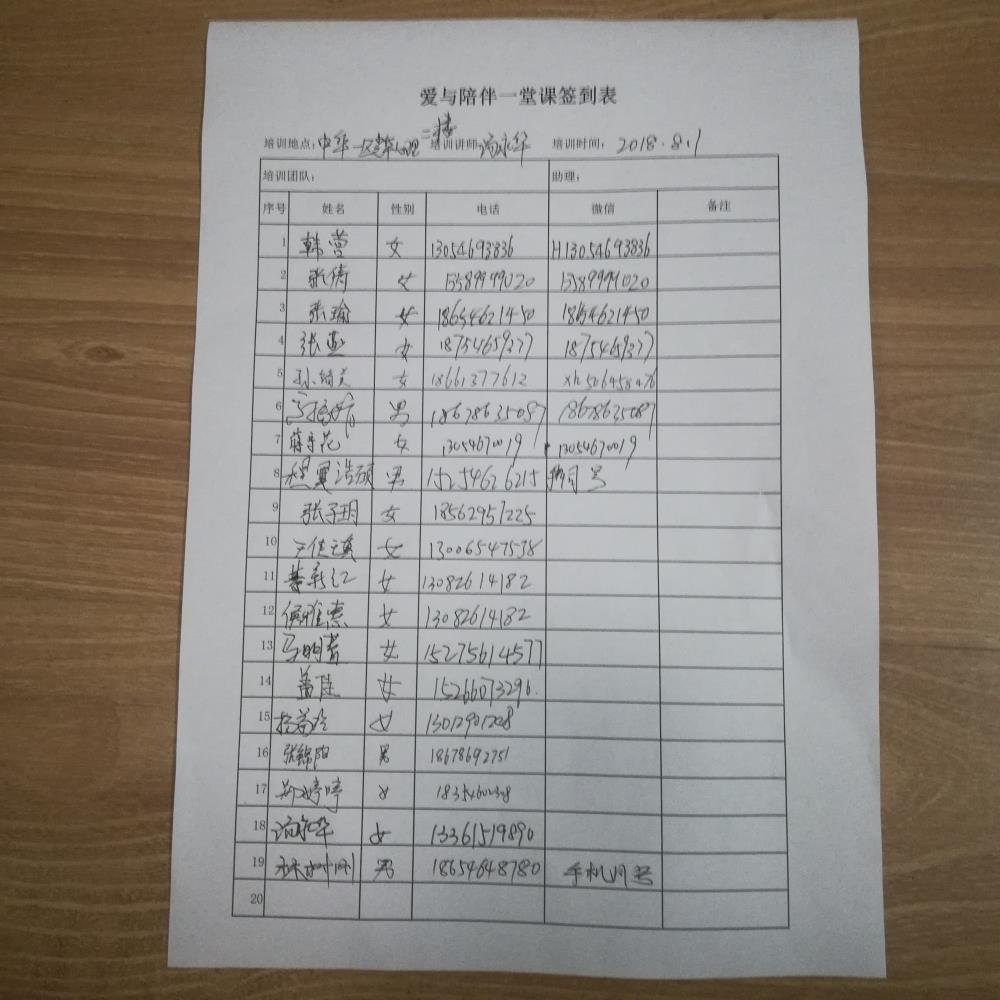 爱与陪伴一堂课签到表
培训地点: 中华一区 心理二楼 培训讲师: 汤永华 培训时间: 2018.8.1
培训团队: 助理:
序号 姓名 性别 电话 微信 备注
1 韩萱 女 13054693836 H13054693836
2 张倩 女 13589999020 13589999020
3 张瑜 女 18654621450 18654621450
4 张燕 女 18754659377 18754659377
5 女 18661377612
6 男 18678635087 18678635087
7 女 13054670019 13054670019
8 程翼浩硕 男 15254626215 同号
9 张子玥 女 18562951225
10 女 13006547538
11 女 13082614182
12 女 13082614182
13 马明青 女 15275614577
14 盖佳 女 15266073296.
15 女 13012901208
16 张锦阳 男 18678692751
17 婷婷 女
18 汤永华 女 13361519890
19 林树刚 男 18654648780 手机同号
20